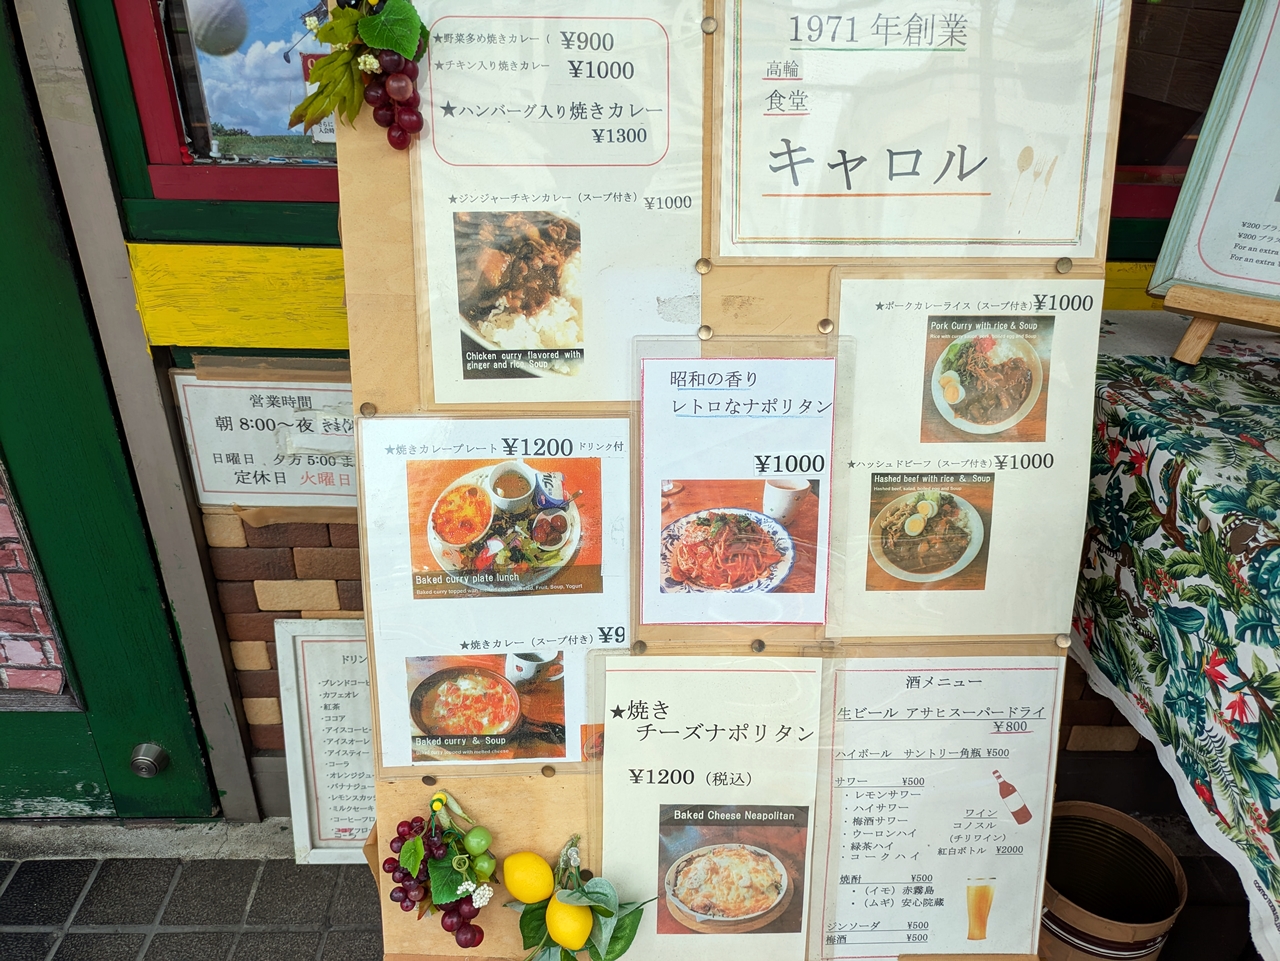 ★野菜多め焼きカレー ( ¥900
★チキン入り焼きカレー ¥1000
★ハンバーグ入り焼きカレー
¥1300
★ジンジャーチキンカレー（スープ付き） ¥1000
Chicken curry flavored with
ginger and rice Soup
1971 年創業
高輪
食堂
キャロル
営業時間
朝 8:00～夜
日曜日 夕方 5:00 ま
定休日 火曜日
★焼きカレープレート ¥1200 ドリンク付
Baked curry plate lunch
★焼きカレー（スープ付き） ¥9
Baked curry & Soup
Baked curry topped with melted cheese
昭和の香り
レトロなナポリタン
¥1000
★ポークカレーライス（スープ付き） ¥1000
Pork Curry with rice & Soup
★ハッシュドビーフ（スープ付き） ¥1000
Hashed beef with rice & Soup
★焼き
チーズナポリタン
¥1200（税込）
Baked Cheese Neapolitan
酒メニュー
生ビール アサヒスーパードライ
¥800
ハイボール サントリー角瓶 ¥500
サワー ¥500
・レモンサワー
・ハイサワー
・梅酒サワー
・ウーロンハイ
・緑茶ハイ
・コークハイ
ワイン
コノスル
（チリワイン）
紅白ボトル ¥2000
焼酎 ¥500
・（イモ）赤霧島
・（ムギ）安心院蔵
ジンソーダ ¥500
梅酒 ¥500
ドリン
・ブレンドコーヒ
・カフェオレ
・紅茶
・ココア
・アイスコーヒ
・アイスオーレ
・アイスティー
・コーラ
・オレンジジュ
・バナナジュー
・レモンスカッ
・ミルクセーキ
・コーヒーフロ
¥200 プラス
¥200 プラ
For an extra
For an extra